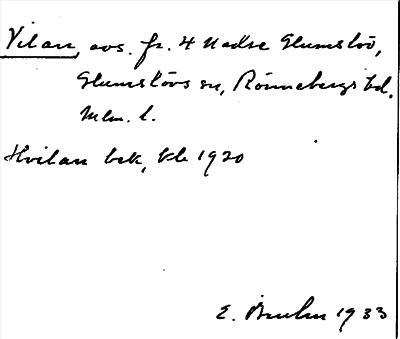 Vilan, avs. fr. 4 Nedre Glumslöv,
Glumslövs sn, Rönnebergs hd.
Mlm. l.
Hvilan bek, kb 1920
E. Bruhn 1933